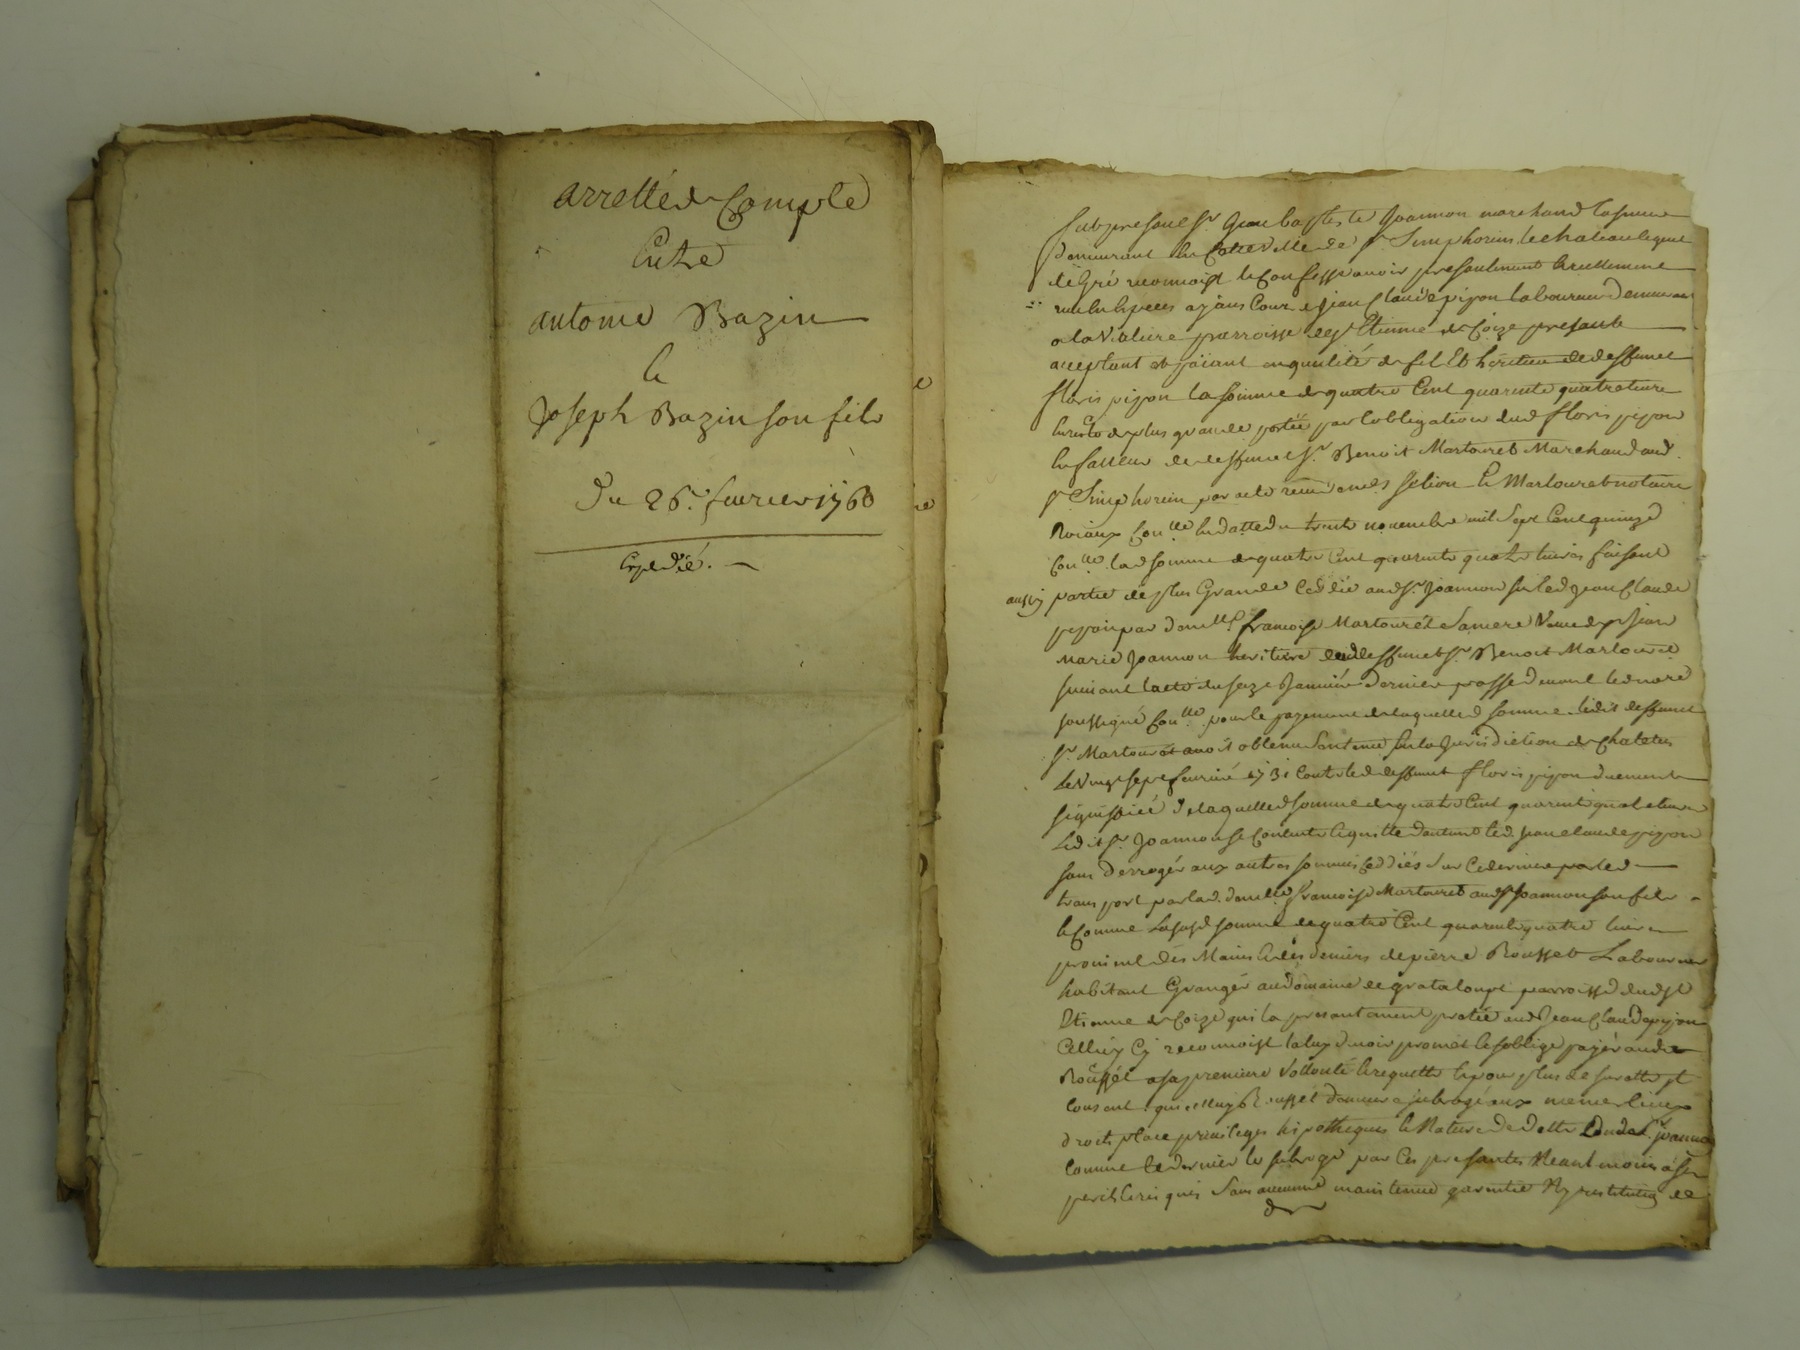 arretté de Compte
Entre
antoine Bazin
&
Joseph Bazin son fils
Du 26e. fevrier 1760
Expedié.
fut present Sr. Jean baptiste Joannon marchand
demeurant en cette ville de St Simphorien le chateau lequel
de gré reconnoist & confesse avoir presentement & reellement
receu en especes ayans cours de Jean Claude pijon laboureur demeurant
a la parroisse de St Etienne de Coize presant
acceptant et paiant en qualité de fils Et heritier de deffunct
floris pijon la somme de quatre Cent quarente quatre livres
en reste de plus grande portée par l'obligation dud floris pijon
en faveur de deffunct Sr. Benoit Martouret Marchand aud.
St Simphorien par acte receu & Martouret notaire
Roiaux Con.llé en datte du trente novembre mil Sept Cent quinze
Con.llé lad somme de quatre Cent quarente quatre livres faisant
aussy partie de plus Grande Cedée aud Sr. Joannon sur led Jean Claude
pijon par dem.lle francoise Martouret sa mere Veuve de Sr Jean
Marie Joannon heritiere dud deffunct Sr. Benoit Martouret
suivant l'acte du seize Janvier dernier passé devant led nore
soussigné Con.llé pour le payement de laquelle somme ledit deffunct
Sr. Martouret avoit obtenu Santence en la Jurisdiction de Chatelus
le Vingt sept fevrier 1731 Contre led deffunct floris pijon duement
signiffiée de laquelle somme de quatre Cent quarente quatre livres
Ledit Sr. Joannon se Contente & quitte d'autant led. Jean claude pijon
sans derroger aux autres sommes Ceddées sur Ce dernier par led
transport par lad. dem.lle francoise Martouret aud Sr Joannon son fils
& Comme la susd somme de quatre Cent quarente quatre livres
provient des Mains & des deniers de pierre Rousset Laboureur
habitant Granger au domaine de grataloup parroisse dud St
Etienne de Coize qui l'a presantement pretée aud Jean Claude pijon
Celluy Cy reconnoist la luy devoir promet & s'oblige payer aud
Rousset a sa premiere Vollonté & requette & pour plus de suretté
Consent que celluy Rousset demeure subrogé aux meme lieux
droits place privileges hipotheques & Nature de dette dud Sr. Joannon
Comme Ce dernier le subroge par Ces presantes Neantmoins a ses
perils & risques sans aucunne maintenue garentie Ny restitution de